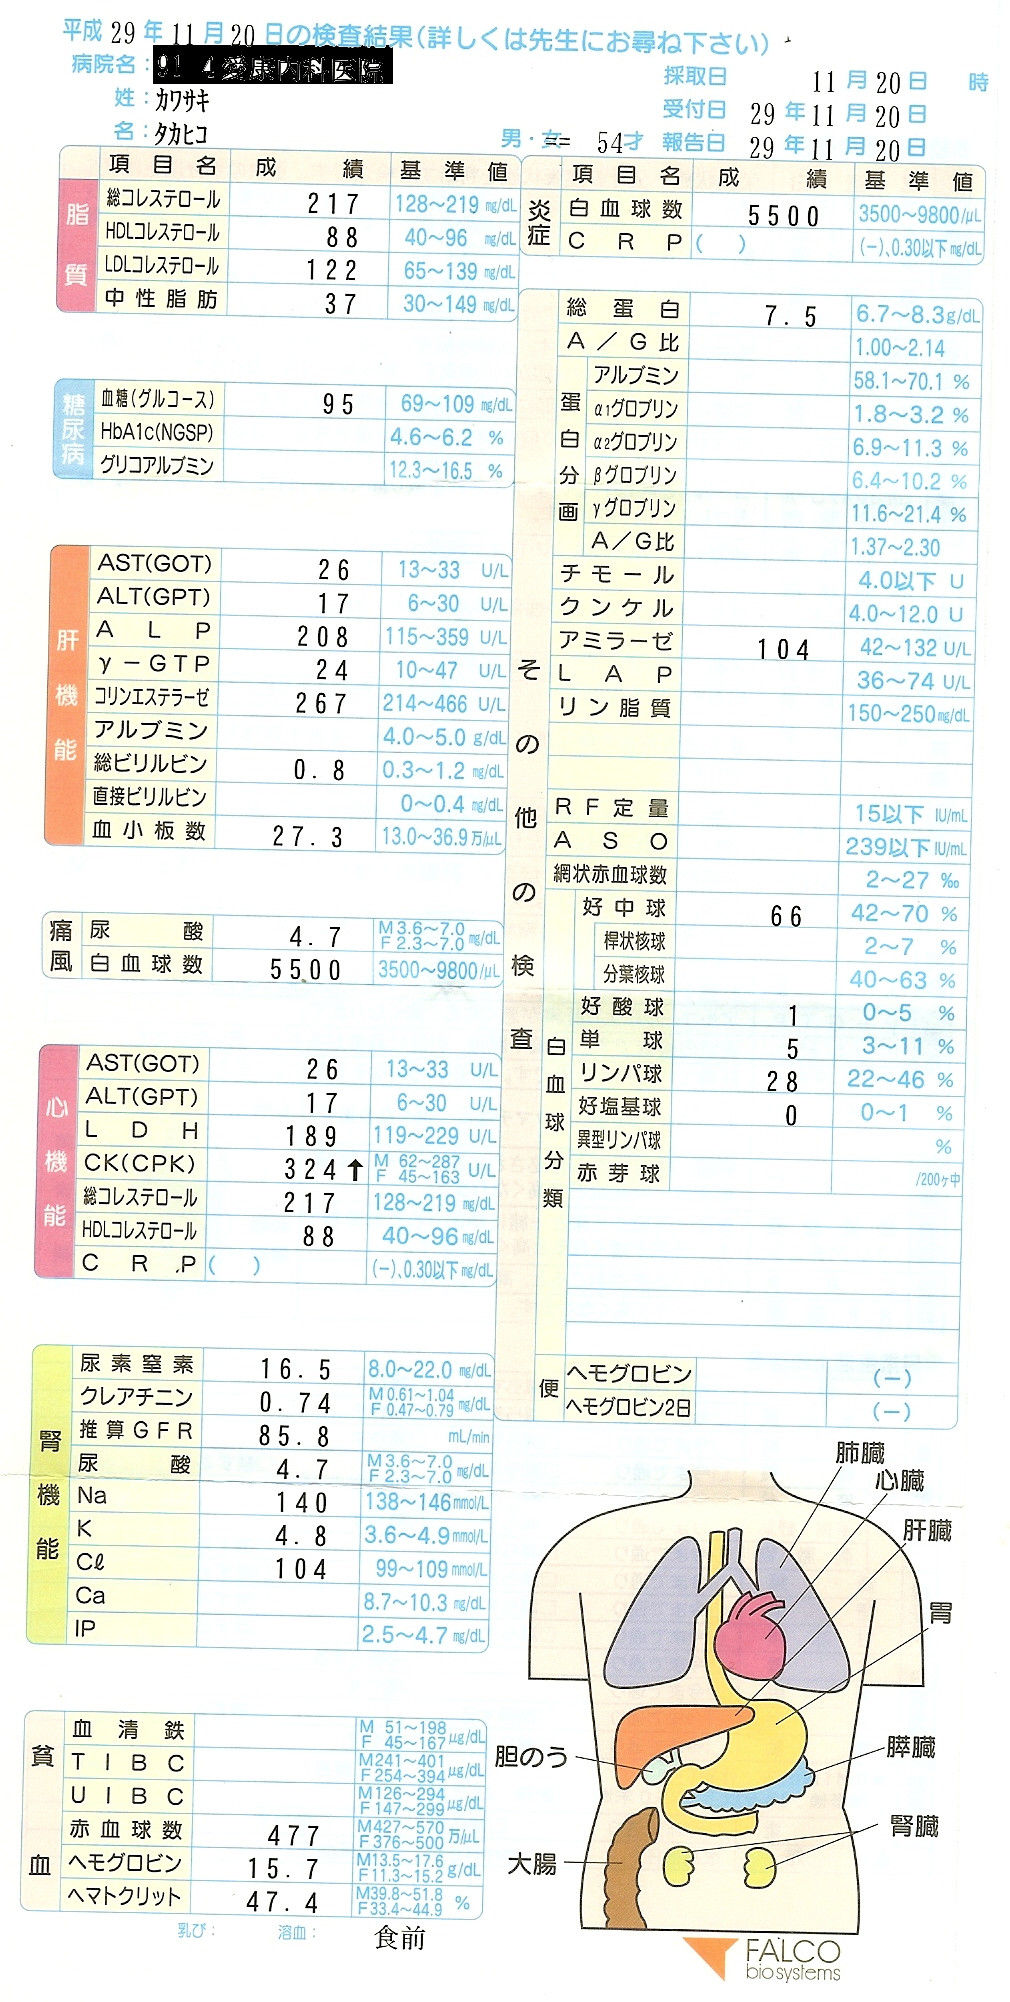 平成29年11月20日の検査結果(詳しくは先生にお尋ね下さい)
病院名:
姓:カワサキ
名:タカヒコ
男・女 == 54才
採取日 11月20日 時
受付日 29年11月20日
報告日 29年11月20日
項目名 成績 基準値
脂質
総コレステロール 217 128~219 mg/dL
HDLコレステロール 88 40~96 mg/dL
LDLコレステロール 122 65~139 mg/dL
中性脂肪 37 30~149 mg/dL
糖尿病
血糖(グルコース) 95 69~109 mg/dL
HbA1c(NGSP) 4.6~6.2 %
グリコアルブミン 12.3~16.5 %
肝機能
AST(GOT) 26 13~33 U/L
ALT(GPT) 17 6~30 U/L
ALP 208 115~359 U/L
γ-GTP 24 10~47 U/L
コリンエステラーゼ 267 214~466 U/L
アルブミン 4.0~5.0 g/dL
総ビリルビン 0.8 0.3~1.2 mg/dL
直接ビリルビン 0~0.4 mg/dL
血小板数 27.3 13.0~36.9 万/μL
痛風
尿酸 4.7 M 3.6~7.0 F 2.3~7.0 mg/dL
白血球数 5500 3500~9800/μL
心機能
AST(GOT) 26 13~33 U/L
ALT(GPT) 17 6~30 U/L
LDH 189 119~229 U/L
CK(CPK) 324↑ M 62~287 F 45~163 U/L
総コレステロール 217 128~219 mg/dL
HDLコレステロール 88 40~96 mg/dL
CRP ( ) (-)、0.30以下mg/dL
腎機能
尿素窒素 16.5 8.0~22.0 mg/dL
クレアチニン 0.74 M 0.61~1.04 F 0.47~0.79 mg/dL
推算GFR 85.8 mL/min
尿酸 4.7 M 3.6~7.0 F 2.3~7.0 mg/dL
Na 140 138~146 mmol/L
K 4.8 3.6~4.9 mmol/L
Cℓ 104 99~109 mmol/L
Ca 8.7~10.3 mg/dL
IP 2.5~4.7 mg/dL
貧血
血清鉄 M 51~198 F 45~167 μg/dL
TIBC M241~401 F254~394 μg/dL
UIBC M126~294 F147~299 μg/dL
赤血球数 477 M427~570 F376~500 万/μL
ヘモグロビン 15.7 M13.5~17.6 F11.3~15.2 g/dL
ヘマトクリット 47.4 M39.8~51.8 F33.4~44.9 %
乳び: 溶血: 食前
項目名 成績 基準値
炎症
白血球数 5500 3500~9800/μL
CRP ( ) (-)、0.30以下mg/dL
その他の検査
総蛋白 7.5 6.7~8.3g/dL
A/G比 1.00~2.14
蛋白分画
アルブミン 58.1~70.1 %
α1グロブリン 1.8~3.2 %
α2グロブリン 6.9~11.3 %
βグロブリン 6.4~10.2 %
γグロブリン 11.6~21.4 %
A/G比 1.37~2.30
チモール 4.0以下 U
クンケル 4.0~12.0 U
アミラーゼ 104 42~132 U/L
LAP 36~74 U/L
リン脂質 150~250mg/dL
RF定量 15以下 IU/mL
ASO 239以下 IU/mL
網状赤血球数 2~27 ‰
白血球分類
好中球 66 42~70 %
桿状核球 2~7 %
分葉核球 40~63 %
好酸球 1 0~5 %
単球 5 3~11 %
リンパ球 28 22~46 %
好塩基球 0 0~1 %
異型リンパ球 %
赤芽球 /200ヶ中
便
ヘモグロビン (-)
ヘモグロビン2日 (-)
肺臓
心臓
肝臓
胃
胆のう
膵臓
腎臓
大腸
FALCO
biosystems